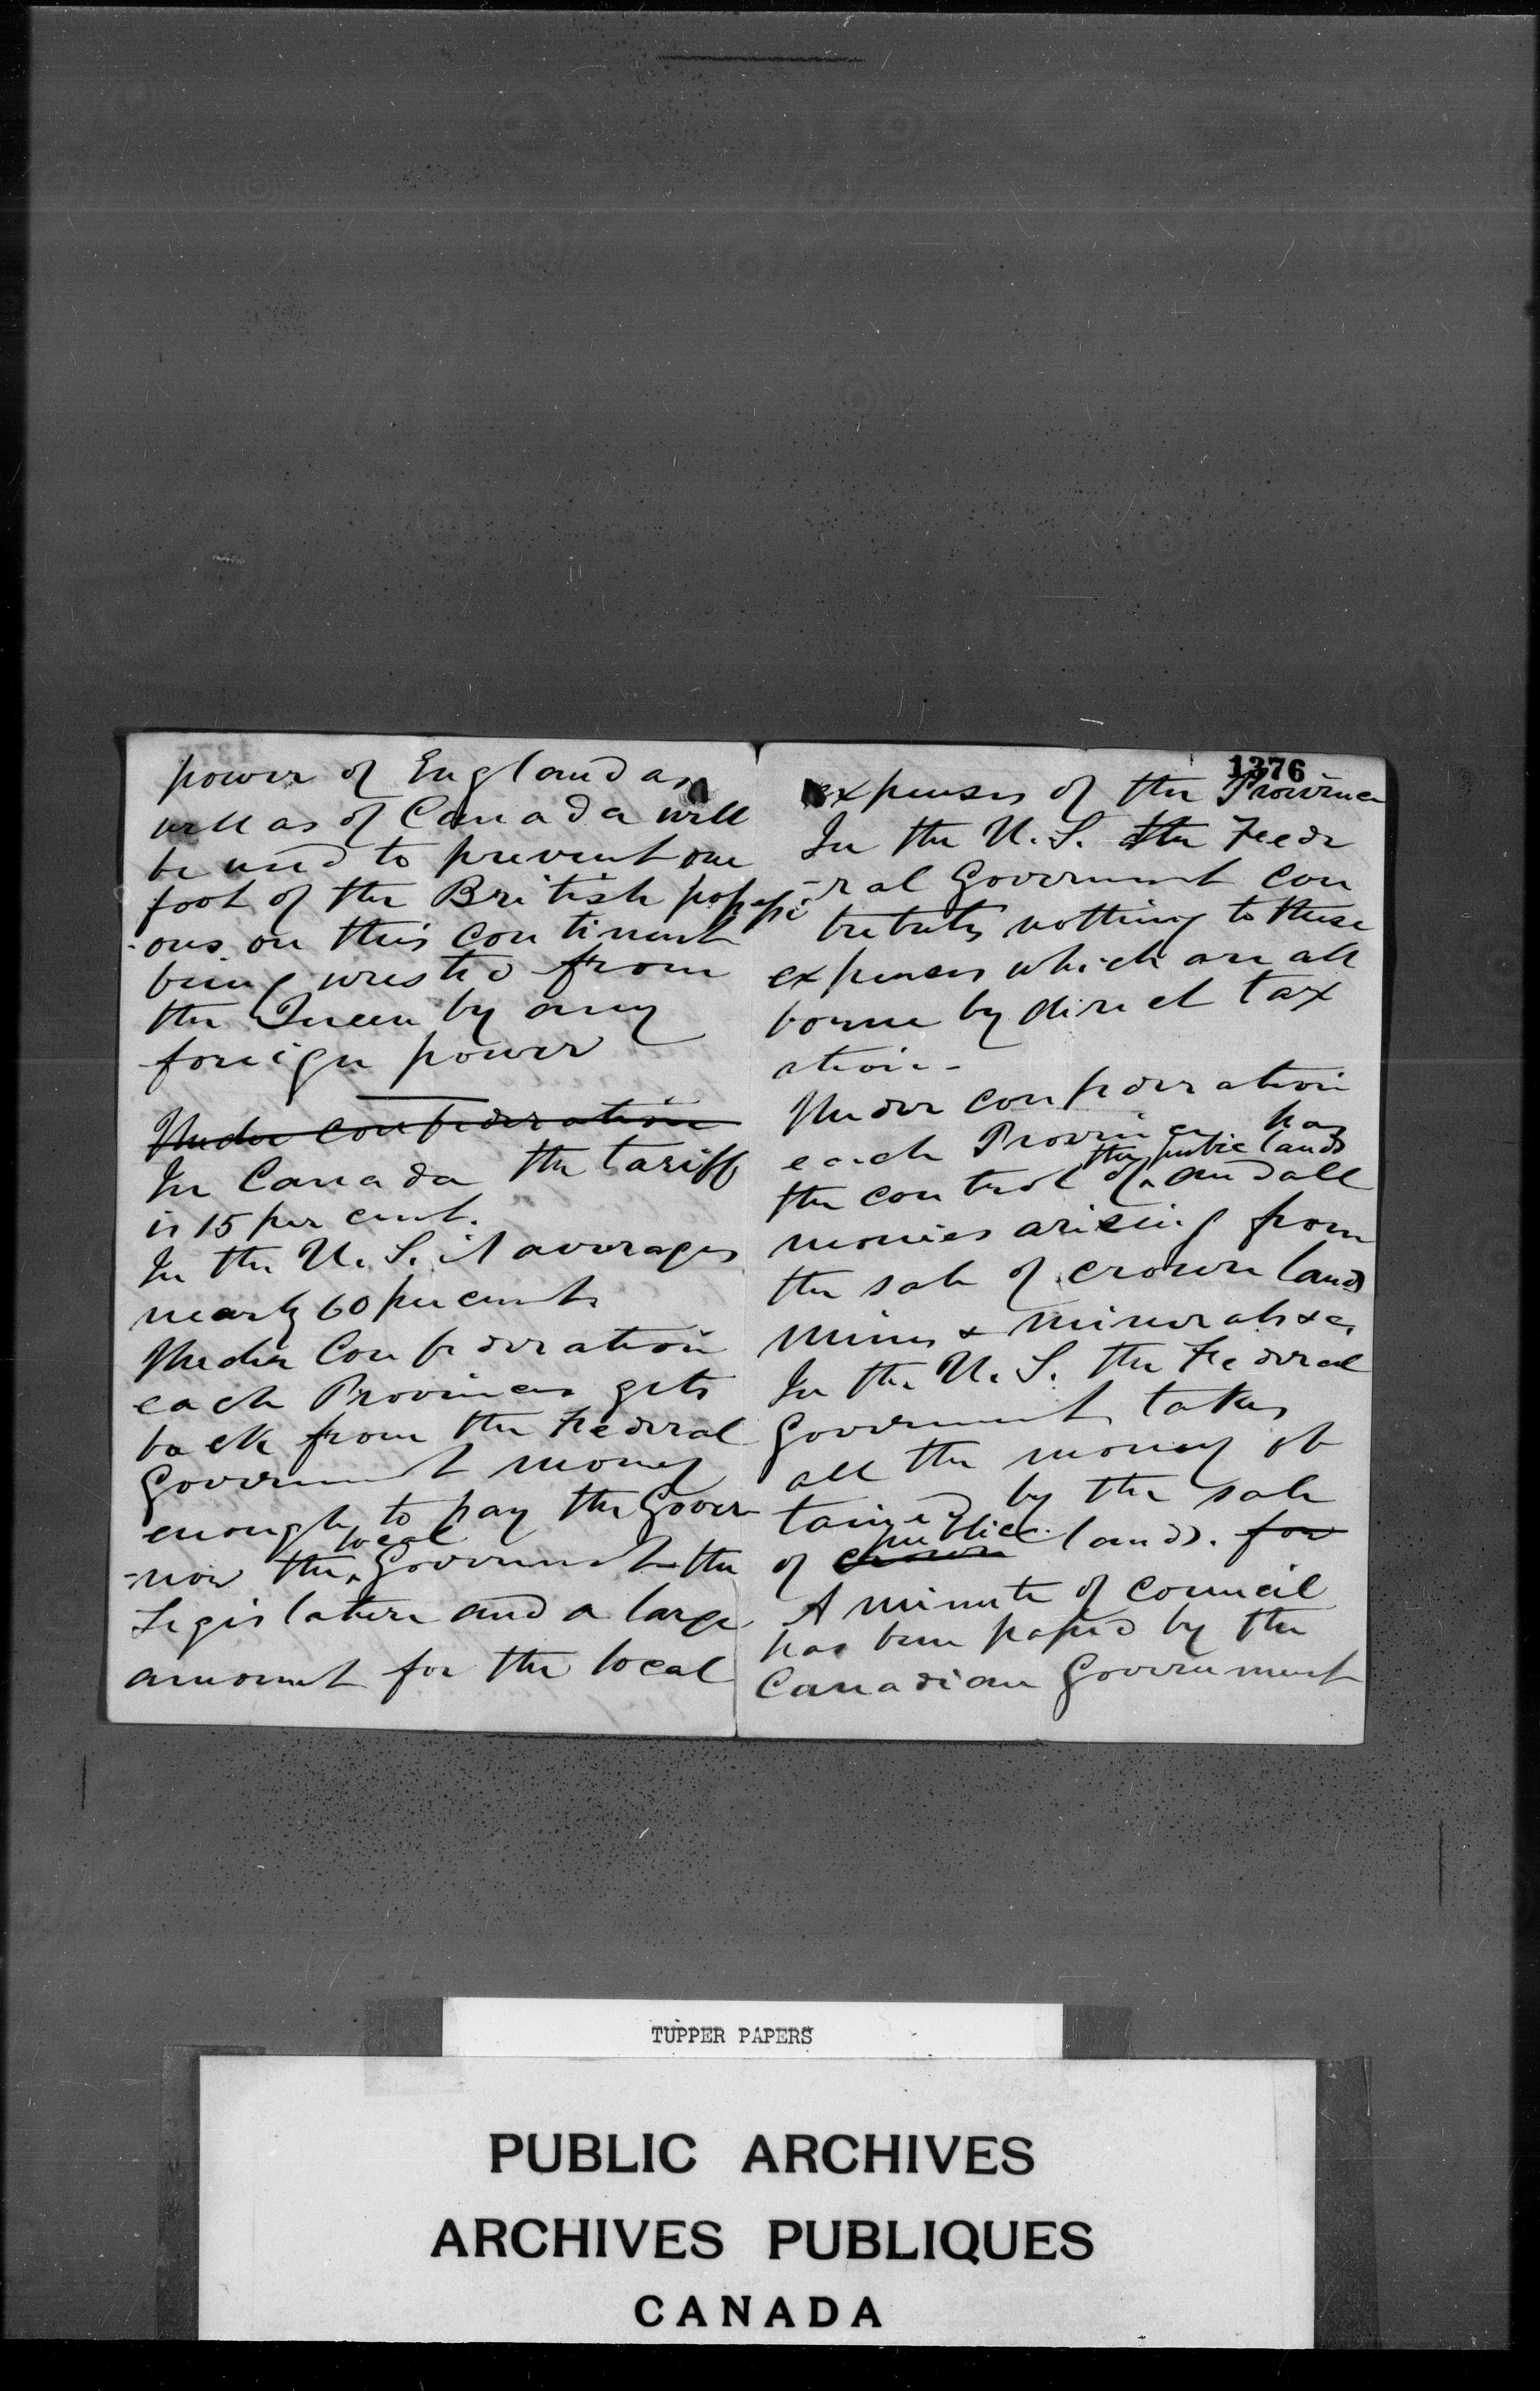 power of England as
well as of Canada will
be used to prevent one
foot of the British possessi
-ons on this continent
being wrested from
the Queen by any
foreign power
Under confederation
In Canada the tariff
is 15 per cent.
In the U. S. it averages
nearly 60 per cent.
Under Confederation
each Province gets
back from the Federal
Government money
enough to pay the Gover
local
-nor the Government the
Legislature and a large
amount for the local
1376
expenses of the Province
In the U. S. the Fede
-ral Government con
tributes nothing to these
expenses which are all
borne by direct tax
ation-
Under confederation
each Province has
the public lands
the control of and all
monies arising from
the sale of crown lands
mines & minerals &c.
In the U. S. the Federal
Government takes
all the money ob
tained by the sale
public
of crown lands. for
A minute of council
has been passed by the
Canadian Government
TUPPER PAPERS
PUBLIC ARCHIVES
ARCHIVES PUBLIQUES
CANADA